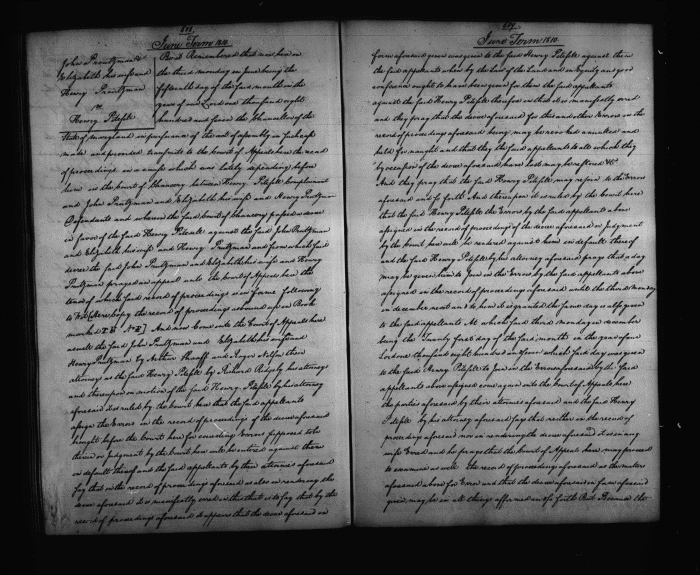 June Term 1810.
John Proutzman &
Elizabeth his wife and
Henry Proutzman
vs
Henry Pitesfle
Be it Remembered that now here on
the third monday in June being the
fifteenth day of the said month in the
year of our Lord one thousand eight
hundred and
the Chancellor of the
State of maryland in pursuance of the act of assembly in such case
made and provided transmits to the Court of Appeals here the record
of proceedings in a cause which was lately depending before
him in the Court of Chancery between Henry Complainant
and John Proutzman and Elizabeth his wife and Henry Proutzman
Defendants and wherein the said Court of Chancery passed a decree
in favor of the said Henry against the said John Proutzman
and Elizabeth his wife and Henry Proutzman and from which said
decree the said John Proutzman and Elizabeth his wife and Henry
Proutzman prayed an appeal unto the Court of Appeals here the
tenor of which said record of proceedings is in form following
to Wit (Here copy the record of proceedings
Book
And now come into the Court of Appeals here
as well the said John Proutzman and Elizabeth his wife and
Henry Proutzman by Arthur Shaaff and Roger Nelson their
attorney as the said Henry by Richard Ridgely his attorney
and thereupon on motion of the said Henry by his attorney
aforesaid it is ruled by the Court here that the said appellants
assign the Errors in the record of proceedings of the decree aforesaid
brought before the Court here for correcting Errors supposed to be
therein or judgment by the Court here will be entered against them
in default thereof and the said appellants by their attornies aforesaid
say that in the record of proceedings aforesaid as also in rendering the
decree aforesaid it is manifestly erred in this that is to say that by the
record of proceedings aforesaid it appears that the decree aforesaid in
June Term 1810.
form aforesaid given was given to the said Henry against them
the said appellants when by the Law of the Land and in Equity and good
conscience ought to have been given for them the said appellants
against the said Henry therefore in that it is manifestly erred
and they pray that the decree aforesaid for this and other Errors in the
record of proceedings aforesaid being may be revoked annulled and
held for naught and that they the said appellants to all which they
by occasion of the decree aforesaid have lost may be restored &c.
And they pray that the said Henry may rejoin to the Errors
aforesaid and so forth And thereupon it is ruled by the Court here
that the said Henry the Errors by the said appellants above
assigned in the record of proceedings of the decree aforesaid or judgment
by the Court here will be rendered against him in default thereof
and the said Henry by his attorney aforesaid prays that a day
may be given him to Join in the Errors by the said appellants above
assigned in the record of proceedings aforesaid until the third monday
in december next and to him it is granted the same day is also given
to the said appellants At which said third monday in december
being the Twenty first day of the said month in the year of our
Lord one thousand eight hundred and
which said day was given
to the said Henry to Join in the Errors aforesaid by the said
appellants above assigned come again into the Court of Appeals here
the parties aforesaid by their attornies aforesaid and the said Henry
by his attorney aforesaid says that neither in the record of
proceedings aforesaid nor in rendering the decree aforesaid it is in any
wise Erred and he prays that the Court of Appeals here may proceed
to examine as well the record of proceedings aforesaid as the matters
aforesaid above for Error and that the decree aforesaid in form aforesaid
given may be in all things affirmed and so forth But Because the